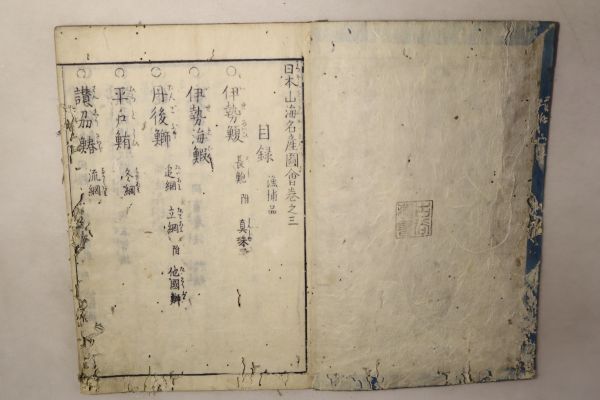 日本山海名産圖會巻之三
目録 漁捕品
伊勢鰒 長鮑 附 真珠
伊勢海鰕
丹後鰤 追網 立網 附 他國鰤
平戸鮪 冬網
讃刕鰆 流網